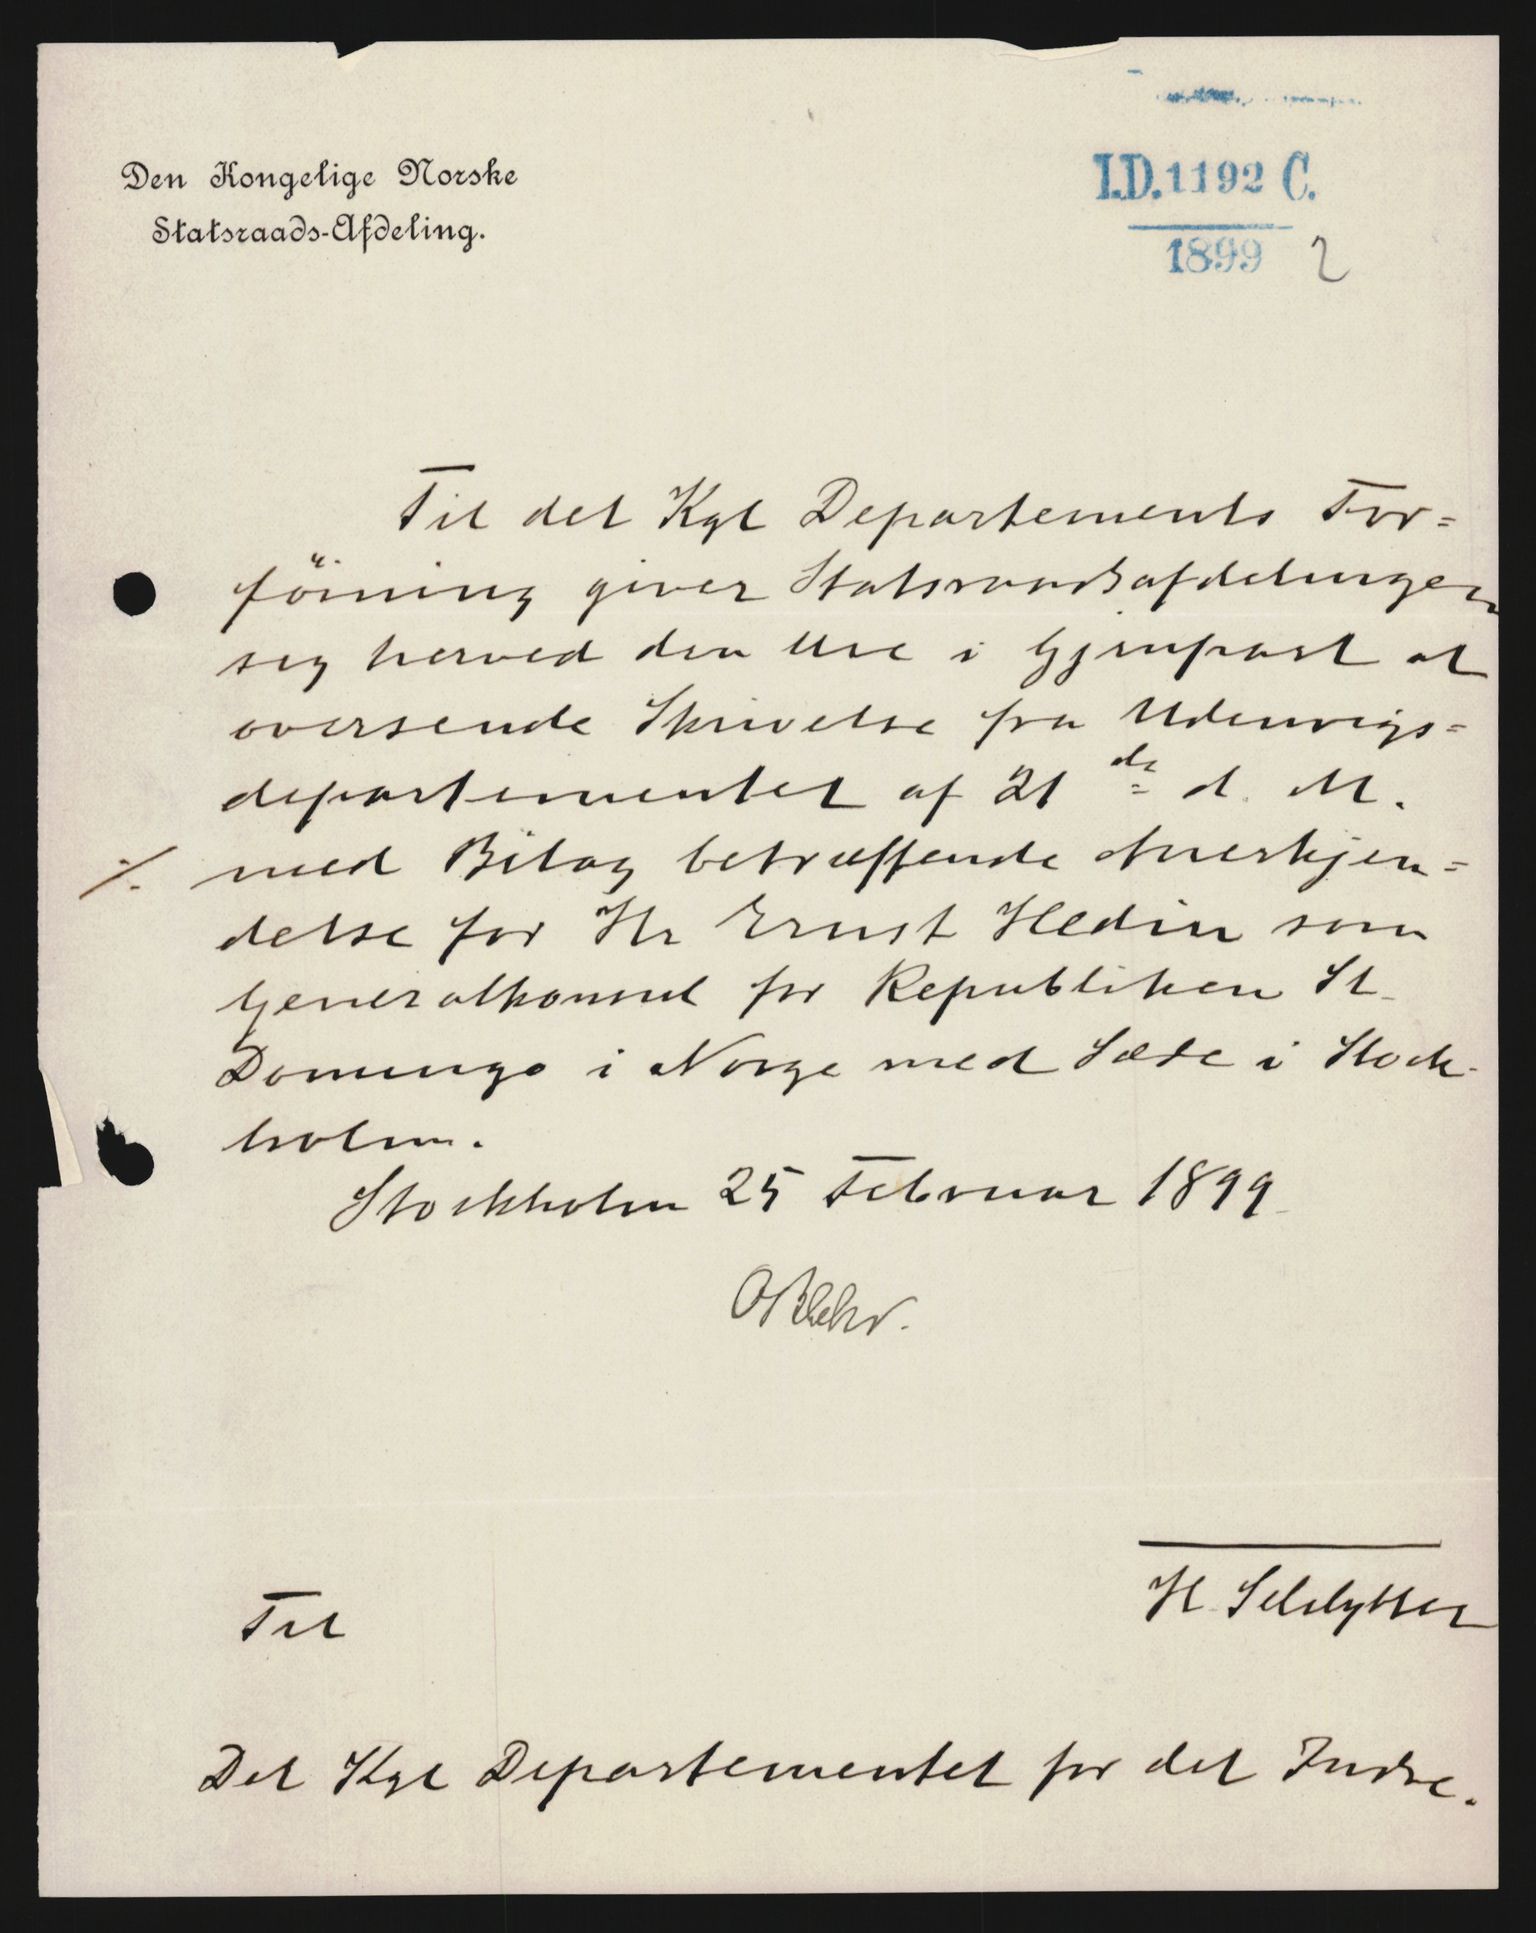 Den Kongelige Norske
Statsraads-Afdeling.
I.D. 1192 C.
1899 2
Til det Kgl Departements For=
föining giver Statsraadsafdelingen
sig herved den Ære i Gjenpart at
oversende Skrivelse fra Udenrigs=
departementet af 21 de d. M.
./. med Bilag betræffende Anerkjen=
delse for Hr Ernst Hedin som
Generalkonsul for Republiken St.
Domingo i Norge med Sæde i Stock-
holm.
Stockholm 25 Februar 1899.
OBlehr.
H. Schlytter
Til
Det Kgl Departementet for det Indre.